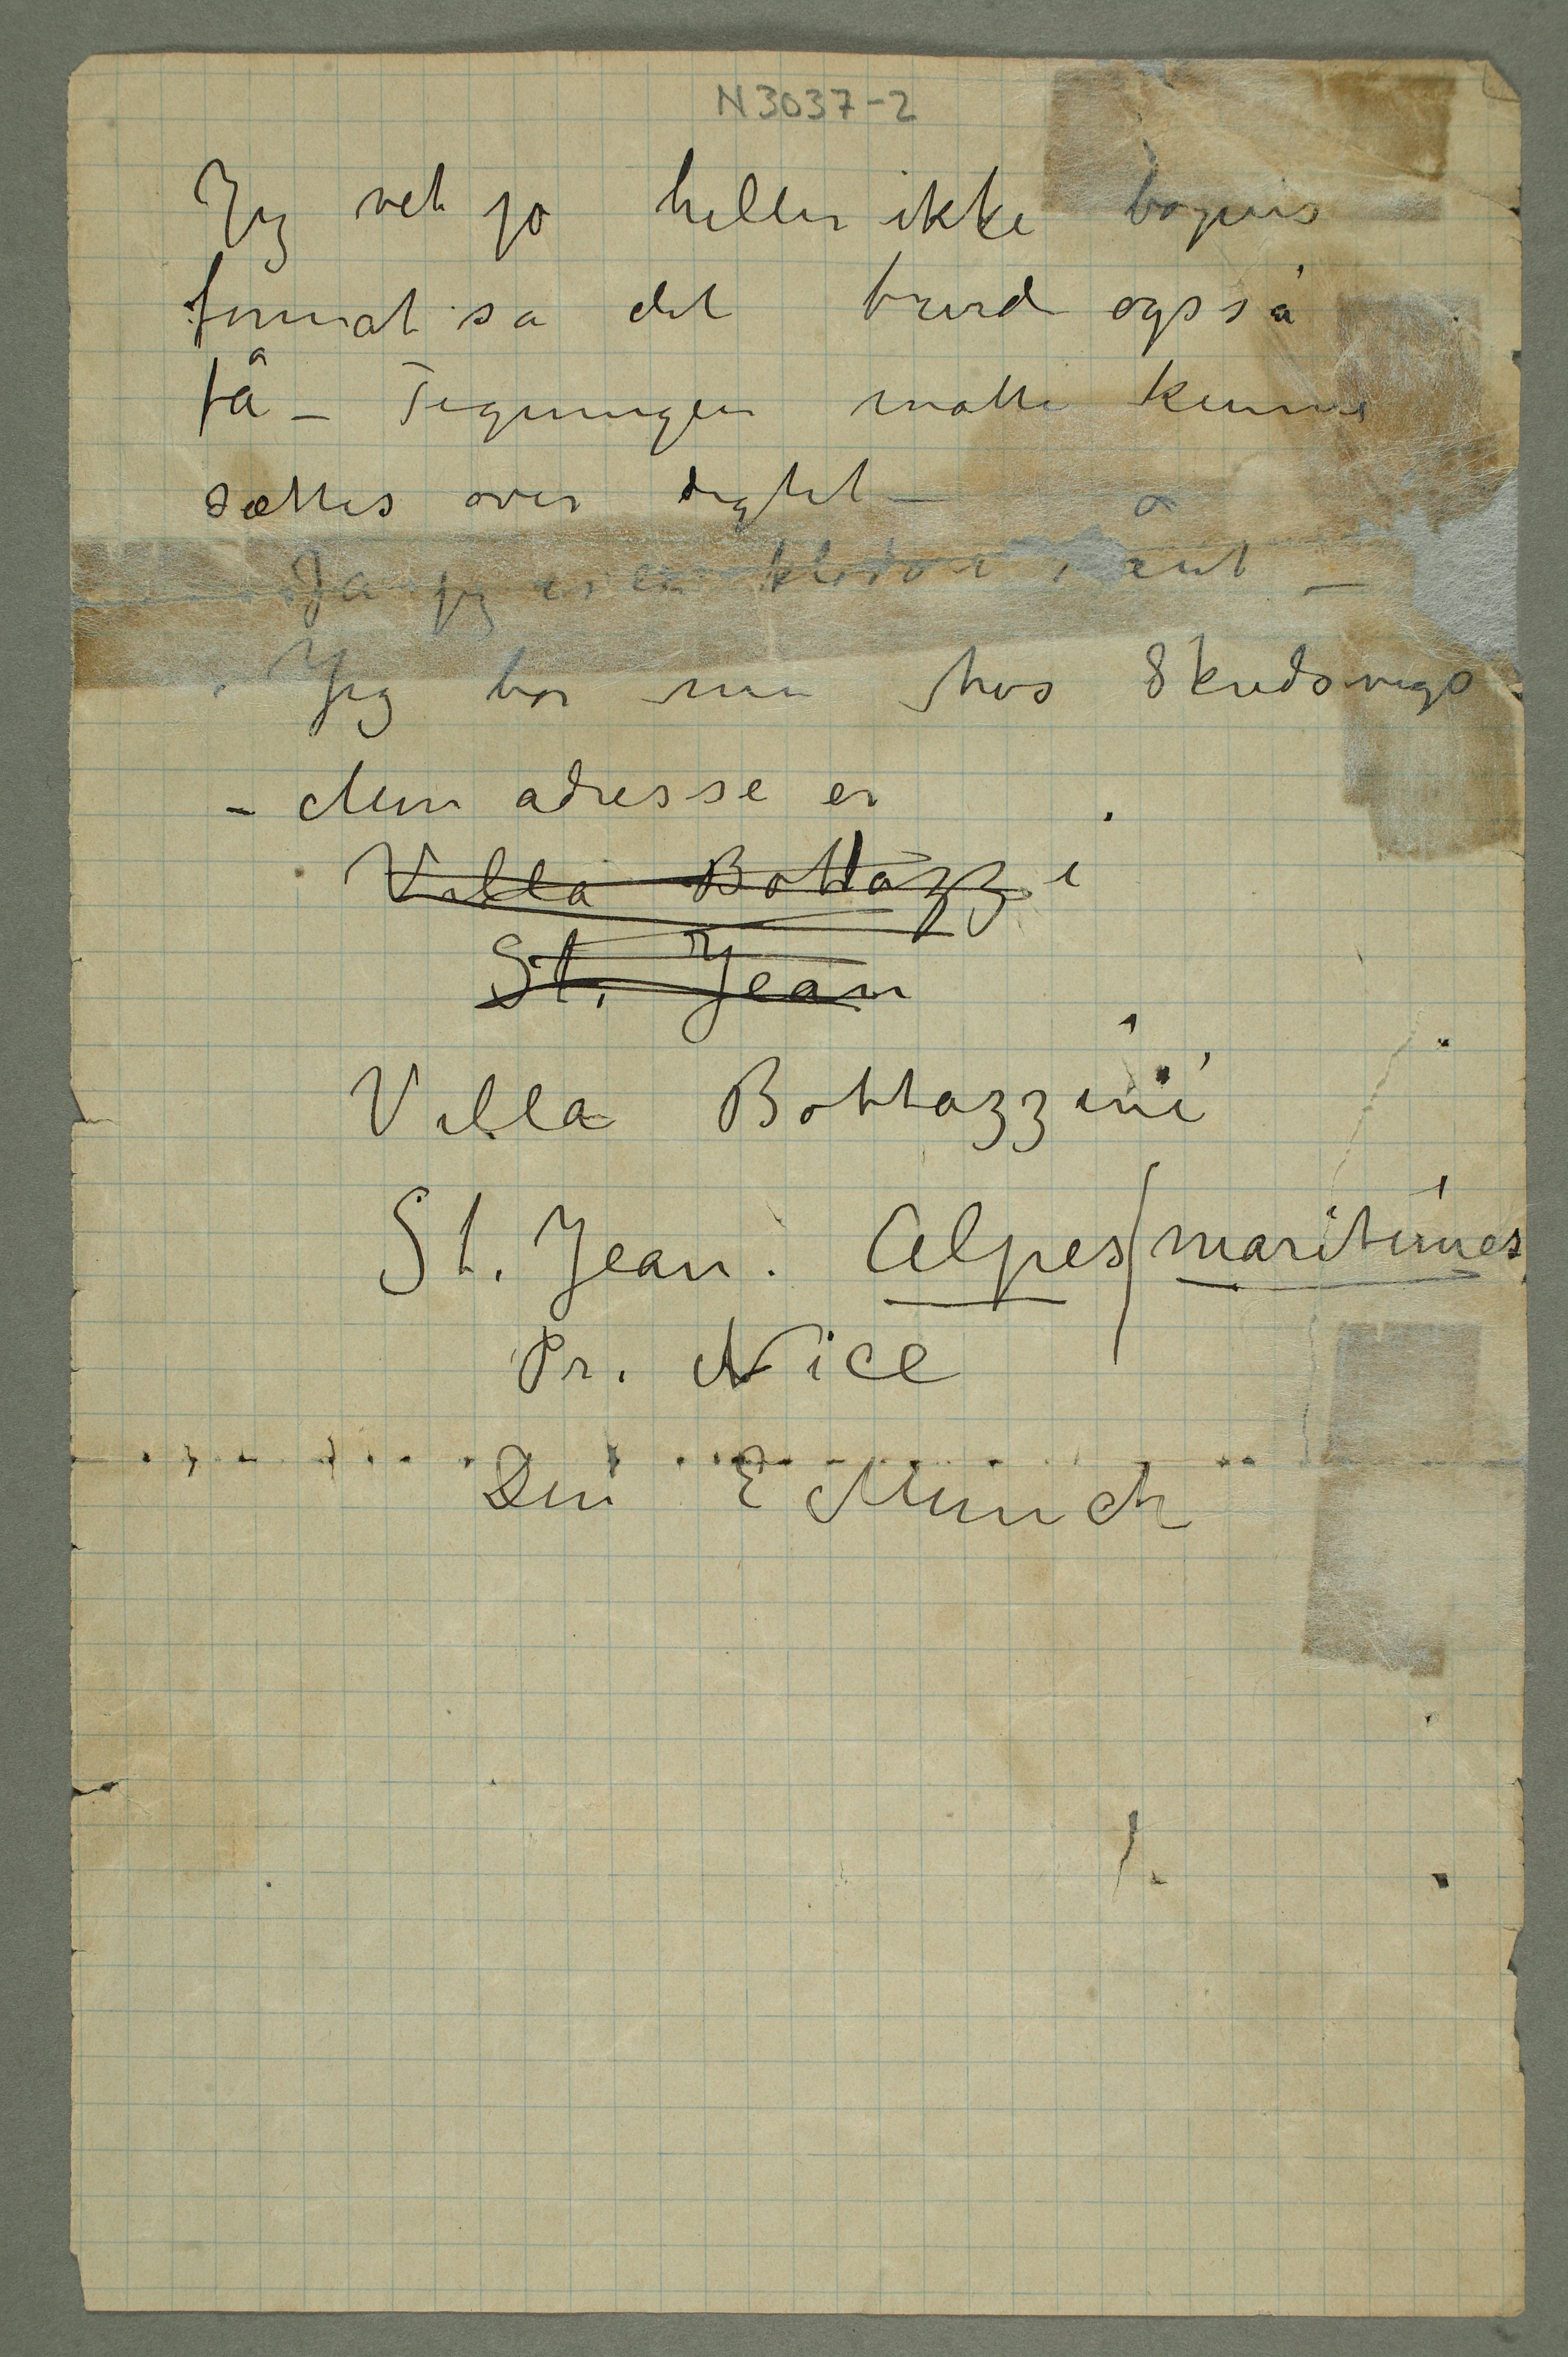 N3037-2
Jeg vet jo heller ikke bogens
format så det burde også
få – Tegningen matte kunne
sættes over digtet –
Ja jeg er en klodd i
Jeg bor nu hos Skredsvigs
– Min adresse er
Villa Bottazzi
St. Jean
Villa Bottazzini
St. Jean. Alpes/maritimes
Pr. Nice
Din E Munch